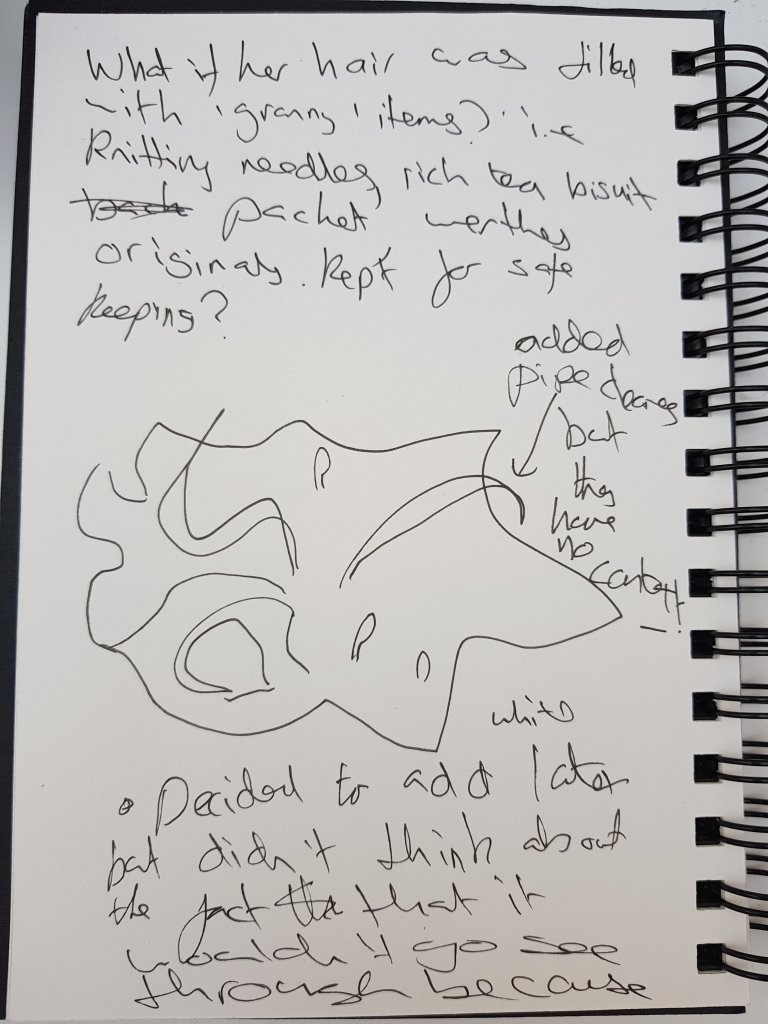 What if her hair was filled
with 'granny' items? i.e
Knitting needles, rich tea biscuit
packet werthes
originals. Kept for safe
keeping?
added
pipe
but
they
have
no
white
• Decided to add later
but didn't think about
the fact that it
wouldn't go see
through because